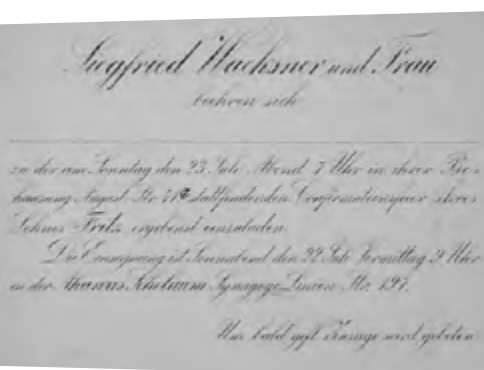 Siegfried Wachsner und Frau
beehren sich
zu der am Sonntag den 23. Abend 7 Uhr in ihrer Be-
hausung August Str. stattfindenden Confirmationsfeier ihres
Sohnes Fritz ergebenst einzuladen.
Die Einsegnung ist Sonnabend den 22. Vormittag 9 Uhr
in der Synagoge, Linien Str. 197.
Um bald gefl. Zusage wird gebeten.